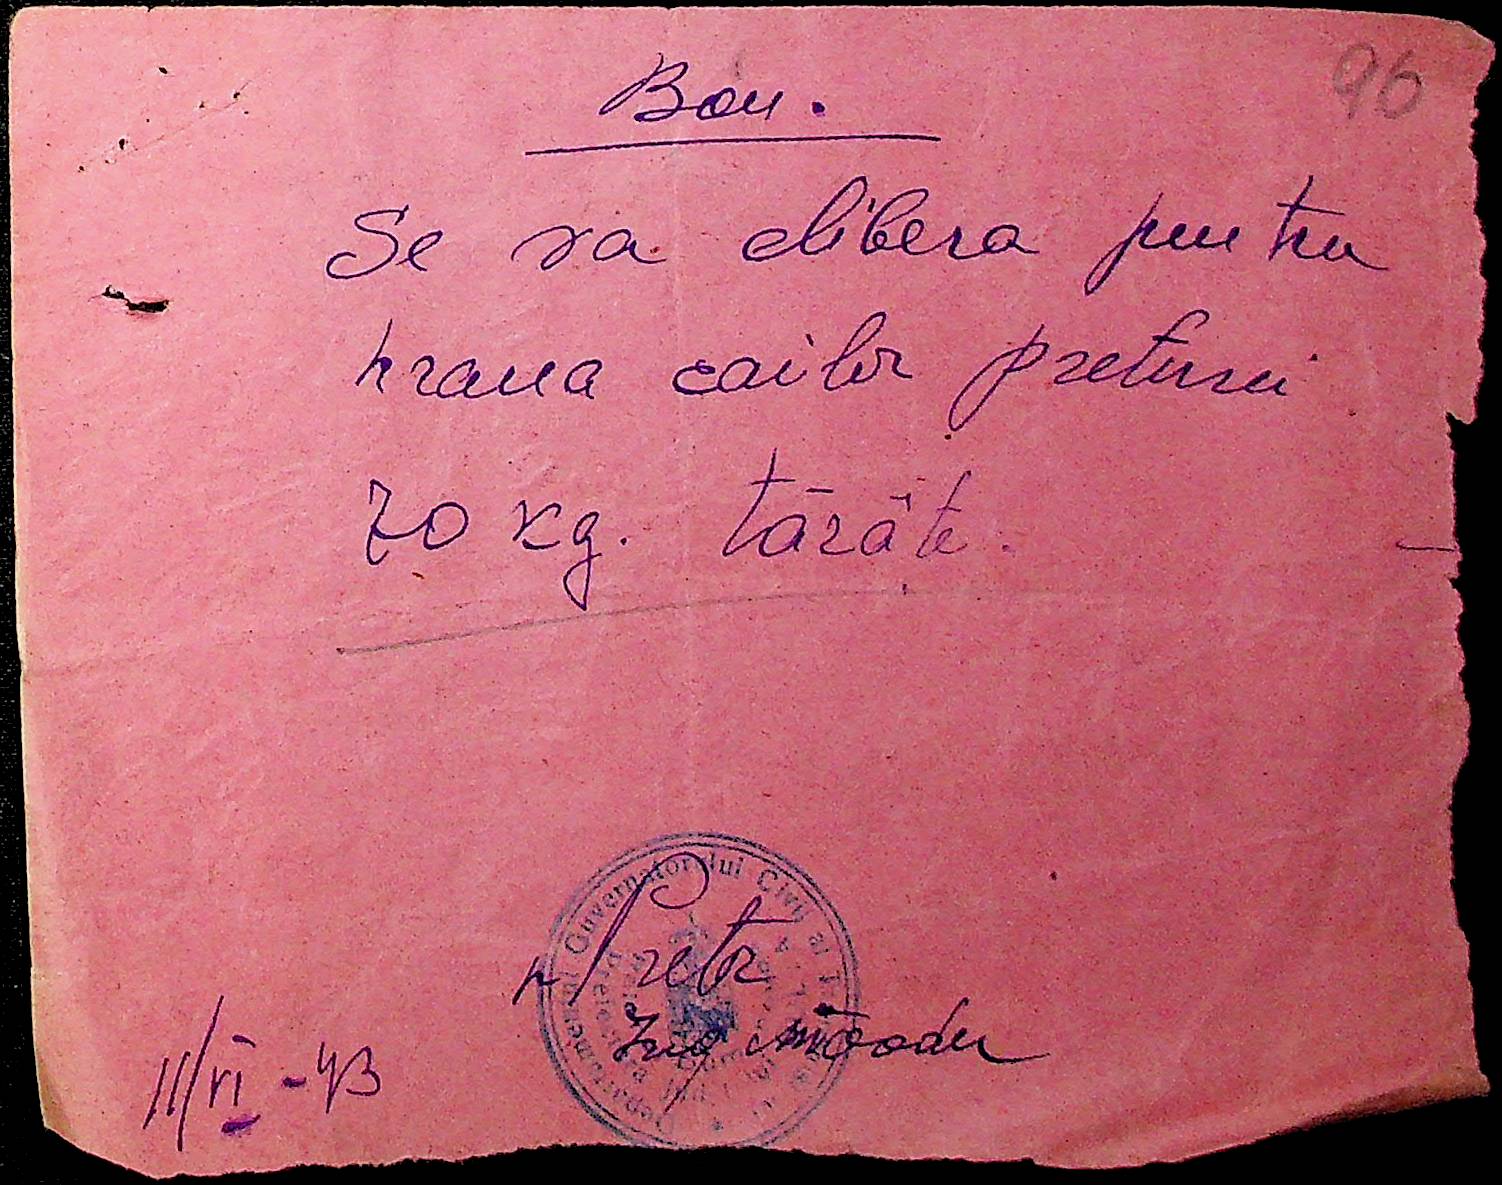 96
Bon.
Se va elibera pentru
hrana cailor preturei
70 kg. tărâte.
p Pretor
Departamentul Guvernatorului Civil al
11/VI - 43